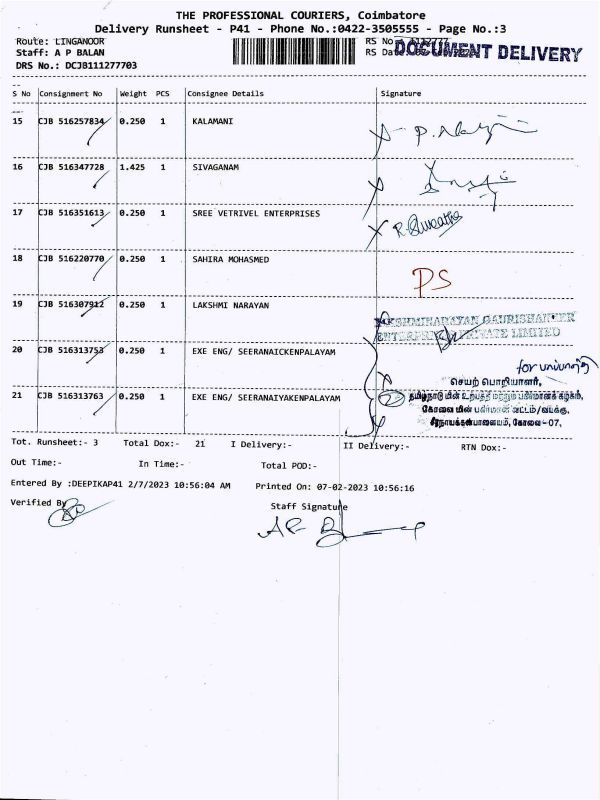 THE PROFESSIONAL COURIERS, Coimbatore
Delivery Runsheet - P41 - Phone No.:0422-3505555 - Page No.:3
Route: LINGANOOR
Staff: A P BALAN
DRS No.: DCJB111277703
RS No
RS Date
DOCUMENT DELIVERY
S No Consignment No Weight PCS Consignee Details Signature
15 CJB 516257834 0.250 1 KALAMANI
16 CJB 516347728 1.425 1 SIVAGANAM
17 CJB 516351613 0.250 1 SREE VETRIVEL ENTERPRISES
18 CJB 516220770 0.250 1 SAHIRA MOHASMED PS
19 CJB 516307912 0.250 1 LAKSHMI NARAYAN
LAKSHMINARAYAN GAURISHANKER
ENTERPRISES PRIVATE LIMITED
20 CJB 516313753 0.250 1 EXE ENG/ SEERANAICKENPALAYAM
for
செயற் பொறியாளர்,
21 CJB 516313763 0.250 1 EXE ENG/ SEERANAIYAKENPALAYAM
2 தமிழ்நாடு மின் உற்பத்தி மற்றும் பகிர்மானக் கழகம்,
கோவை மின் பகிர்மான வட்டம்/வடக்கு,
சீரநாயக்கன்பாளையம், கோவை-07.
Tot. Runsheet:- 3 Total Dox:- 21 I Delivery:- II Delivery:- RTN Dox:-
Out Time:- In Time:- Total POD:-
Entered By :DEEPIKAP41 2/7/2023 10:56:04 AM Printed On: 07-02-2023 10:56:16
Verified By Staff Signature